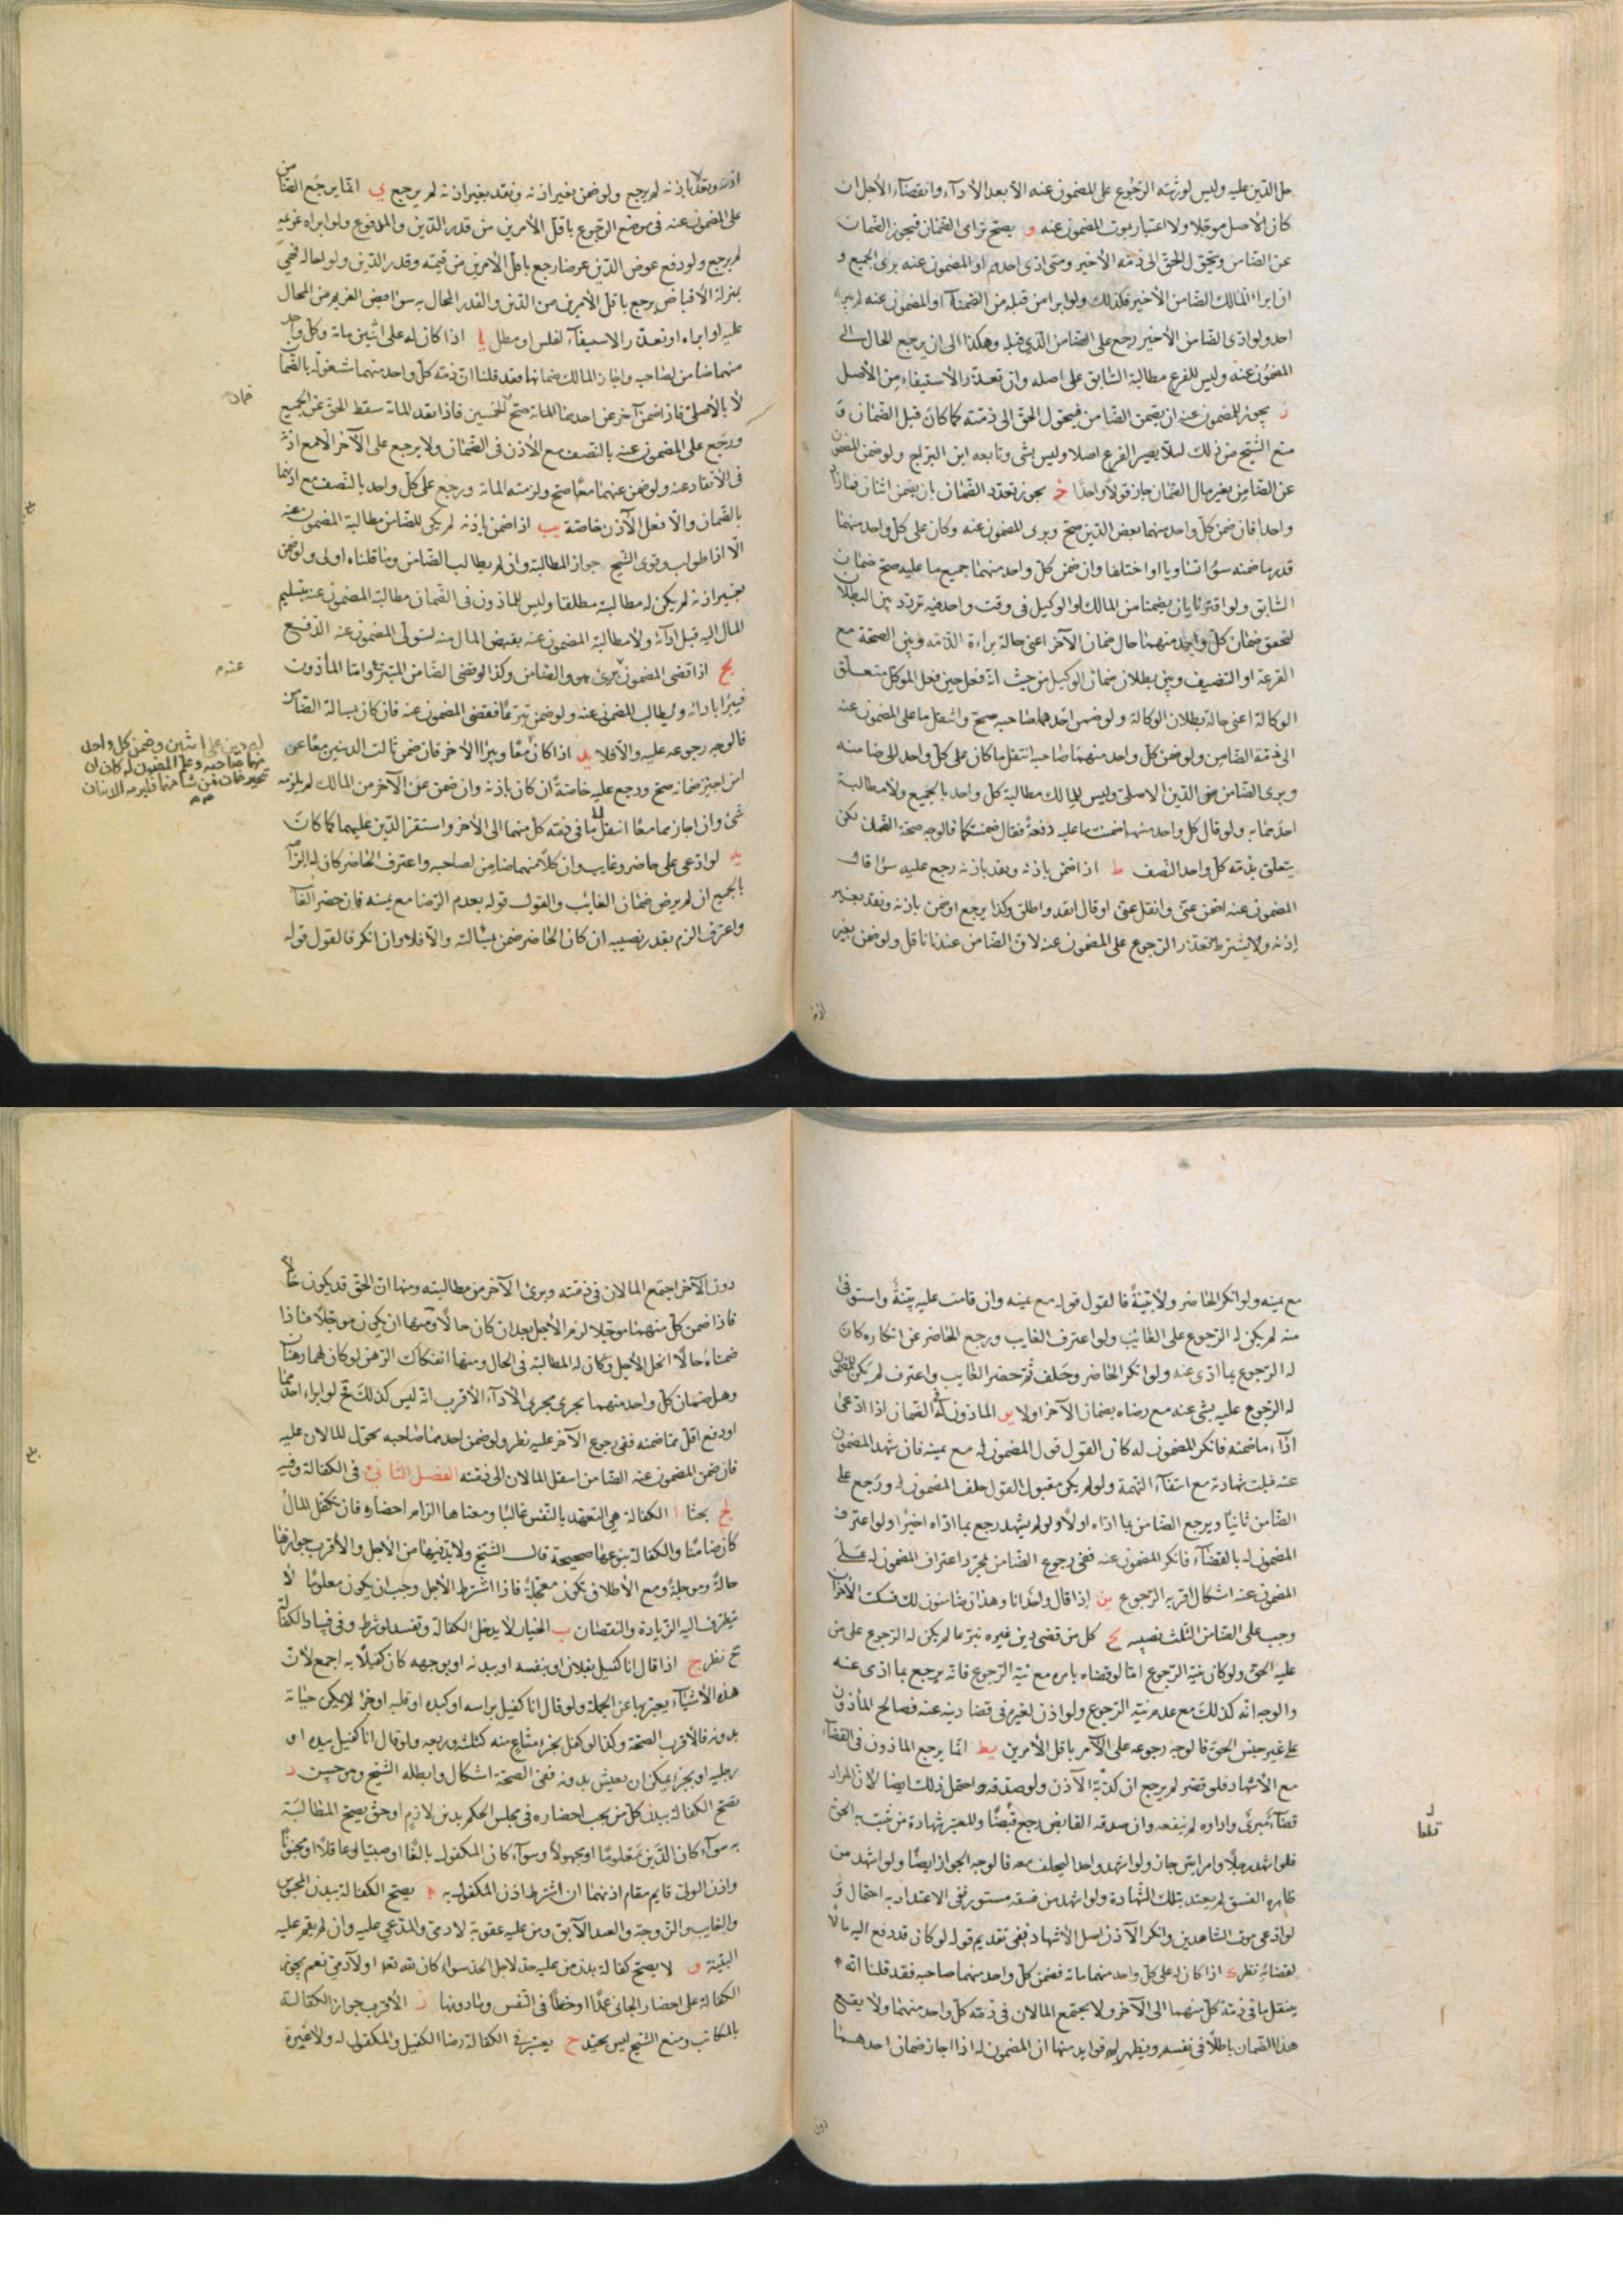 حل الدين عليه وليس لورثته الرجوع على المضمون عنه الا بعد الاداء وانقضاء الاجل ان
كان الاصل موجلا ولا اعتبار بموت المضمون عنه و يصح ترامى الضمان فيجوز الضمان
عن الضامن ويتحول الحق الى ذمة الاخير ومتى ادى احدهم او المضمون عنه برى الجميع و
ان ابراء المالك الضامن الاخير فكذلك ولو ابرا من قبله من الضمناء او المضمون عنه لم يبراء
احد ولو ادى الضامن الاخير رجع على الضامن الذي قبله وهكذا الى ان يرجع الحال الى
المضمون عنه وليس للفرع مطالبة السابق على اصله وان تعذر الاستيفاء من الاصل
ز يجوز للمضمون عنه ان يضمن الضامن فيتحول الحق الى ذمته كما كان قبل الضمان و
منع الشيخ من ذلك لئلا يصير الفرع اصلا وليس بشى وتابعه ابن البراج ولو ضمن المضمون
عن الضامن بغير مال الضمان جاز قولا واحدا ح يجوز تعدد الضمان بان يضمن اثنان فمازاد
واحدا فان ضمن كل واحد منهما بعض الدين صح وبرى المضمون عنه وكان على كل واحد منهما
قدر ما ضمنه سواء تساويا او اختلفا وان ضمن كل واحد منهما جميع ما عليه صح ضمان
السابق ولو اقترنا بان يضمنا من المالك او الوكيل فى وقت واحد فيه تردد بين البطلان
لتحقق ضمان كل واحد منهما حال ضمان الآخر اعنى حالة براءة الذمه وبين الصحة مع
القرعة او التنصيف وبين بطلان ضمان الوكيل من حيث انه فعل حين فعل الموكل متعلق
الوكالة اعنى حالة بطلان الوكالة ولو ضمن احدهما صاحبه صح وانتقل ما على المضمون عنه
الى ذمة الضامن ولو ضمن كل واحد منهما صاحبه انتقل ما كان على كل واحد الى ضامنه
وبرى الضامن من الدين الاصلى وليس للمالك مطالبة كل واحد بالجميع ولا مطالبة
احدهما به ولو قال كل واحد منهما ضمنت ما عليه دفعة فقال ضمنتكما فالوجه صحة الضمان لكن
يتعلق بذمة كل واحد النصف ط اذا ضمن باذنه ونقد باذنه رجع عليه سواء قال
المضمون عنه اضمن عنى وانقل عنى او قال انقد واطلق وكذا يرجع لو ضمن باذنه ونقد بغير
إذنه ولا يشترط تعذر الرجوع على المضمون عنه لان الضامن عندنا ناقل ولو ضمن بغير
اذنه
اذنه ونقد باذنه لم يرجع ولو ضمن بغير اذنه ونقد بغير اذنه لم يرجع ي انما يرجع الضامن
على المضمون عنه فى موضع الرجوع باقل الأمرين من قدر الدين والمدفوع ولو ابراه غريمه
لم يرجع ولو دفع عوض الدين عرضا رجع باقل الأمرين من قيمته وقدر الدين ولو احاله فهي
بمنزلة الاقباض يرجع باقل الأمرين من الدين والقدر المحال به سواء قبض الغريم من المحال
عليه او ابراه او تعذر الاستيفاء لفلس او مطل يا اذا كان له على اثنين مائة وكل واحد
منهما ضامن لصاحبه واجاز المالك ضمانهما فقد قلنا ان ذمة كل واحد منهما مشغولة بالضمان
لا بالأصل فاذا ضمن آخر عن احدهما المائة صح للخمسين فاذا نقد المائة سقط الحق عن الجميع
ورجع على المضمون عنه بالنصف مع الأذن فى الضمان ولا يرجع على الآخر الا مع اذنه
فى الأنقاد عنه ولو ضمن عنهما معا صح ولزمته المائة ورجع على كل واحد بالنصف مع اذنهما
بالضمان والا فعل الآذن خاصة يب اذا ضمن باذنه لم يكن للضامن مطالبة المضمون عنه
الا اذا طولب وقوى الشيخ جواز المطالبة وان لم يطالب الضامن وما قلناه اولى ولو ضمن
بغير اذنه لم يكن له مطالبة مطلقا وليس للماذون فى الضمان مطالبة المضمون عنه بتسليم
المال اليه قبل ادائه ولا مطالبة المضمون عنه بقبض المال منه ليتولى المضمون عنه الدفع
يج اذا قضى المضمون برئ هو والضامن وكذا لو قضى الضامن المتبرع واما المأذون
فيبرا بادائه ويطالب المضمون عنه ولو ضمن تبرعا فقضى المضمون عنه فان كان بمسالة الضامن
فالوجه رجوعه عليه والا فلا يد اذا كان معا ويبرا الآخر فان ضمن ثالث الدينين معا عن
امن اجيز ضمانه صح ورجع عليه خاصة ان كان باذنه وان ضمن عن الآخر من المالك لم يلزمه
شئ وان اجازهما معا انتقل ما فى ذمة كل منهما الى الآخر واستقر الدين عليهما كما كان
يه لو ادعى على حاضر وغايب وان كلا منهما ضامن لصاحبه واعترف الحاضر كان له الزامه
بالجميع ان لم يرض ضمان الغائب والقول قوله بعدم الرضا مع يمينه فان حضر الغائب
واعترف الزم بقدر نصيبه ان كان الحاضر ضمن بمسالته والا فلا وان انكر فالقول قوله
ضمان
عنه م
له دين على اثنين وضمن كل واحد
منهما صاحبه وعلم المضمون له كان ان
مع يمينه ولو انكر الحاضر ولا بينة فالقول قوله مع يمينه وان قامت عليه بينة واستوفى
منه لم يكن له الرجوع على الغائب ولو اعترف الغايب ورجع الحاضر عن انكاره كان
له الرجوع بما ادى عنه ولو انكر الحاضر وحلف ثم حضر الغايب واعترف لم يكن للمضمون
له الرجوع عليه بشى عنه مع رضاه بضمان الآخر اولا يو الماذون له فى الضمان اذا ادعى
اداء ما ضمنه فانكر المضمون له كان القول قول المضمون له مع يمينه فان شهد المضمون
عنه قبلت شهادته مع انتفاء التهمة ولو لم يكن مقبول القول حلف المضمون له ورجع على
الضامن ثانيا ويرجع الضامن بما اداه اولا ولو لم يشهد رجع بما اداه اخيرا ولو اعترف
المضمون له بالقضاء فانكر المضمون عنه ففى رجوع الضامن بمجرد اعتراف المضمون له على
المضمون عنه اشكال اقربه الرجوع يز إذا قال واحد انا وهذان ضامنون لك فسكت الآخران
وجب على الضامن الثلث نصيبه يح كل من قضى دين غيره تبرعا لم يكن له الرجوع على من
عليه الحق ولو كان نية الرجوع اما لو قضاه بامره مع نية الرجوع فانه يرجع بما ادى عنه
والوجه انه كذلك مع عدم نية الرجوع ولو اذن لغيره فى قضا دينه عنه فصالح المأذون
على غير جنس الحق فالوجه رجوعه على الآمر باقل الأمرين يط انما يرجع الماذون فى القضاء
مع الأشهاد فلو قصر لم يرجع ان كذبه الآذن ولو صدقه واحتمل ذلك ايضا لان المراد
قضاء مبرئ واداوه لم ينفعه وان صدقه القابض رجع قبضا والمعتبر شهادة من يثبت به الحق
فلو اشهد رجلا وامراتين جاز ولو اشهد واحدا ليحلف معه فالوجه الجواز ايضا ولو اشهد من
ظاهره الفسق لم يعتد بتلك الشهادة ولو اشهد من فسقه مستور ففى الاعتداد به احتمال و
لو ادعى موت الشاهدين وانكر الآذن اصل الأشهاد ففى تقديم قوله لو كان قد دفع اليه مالا
لقضائه نظر ك اذا كان له على كل واحد منهما مائة فضمن كل واحد منهما صاحبه فقد قلنا انه
ينتقل ما فى ذمة كل منهما الى الآخر ولا يجتمع المالان فى ذمة كل واحد منهما ولا يقع
هذا الضمان باطلا فى نفسه ويظهر له فوايد منها ان المضمون له اذا اجاز ضمان احدهما
دون
دون الآخر اجتمع المالان فى ذمته وبرئ الآخر من مطالبته ومنها ان الحق قد يكون حالا
فاذا ضمن كل منهما موجلا لزم الأجل بعد ان كان حالا ومنها ان يكون موجلا فاذا
ضمناه حالا انحل الأجل وكان له المطالبة فى الحال ومنها انفكاك الرهن لو كان لهما رهنان
وهل ضمان كل واحد منهما يجرى مجرى الأداء الأقرب انه ليس كذلك فح لو ابراء احدهما
او دفع اقل مما ضمنه ففى رجوع الآخر عليه نظر ولو ضمن احدهما صاحبه تحول المالان عليه
فان ضمن المضمون عنه الضامن انتقل المالان الى ذمته الفصل الثانى فى الكفالة وفيه
لج بحثا ا الكفالة هى التعهد بالنفس غالبا ومعناها الزام احضاره فان تكفل المال
كان ضامنا والكفالة بنوعها صحيحة قال الشيخ ولا بد فيها من الأجل والأقرب جوازها
حالة وموجلة ومع الأطلاق تكون معجلة فاذا اشترط الأجل وجب ان يكون معلوما لا
يتطرق اليه الزيادة والنقصان ب الخيار لا يدخل الكفالة وتفسد لو شرط وفى فساد الكفالة
ح نظر ج اذا قال انا كفيل بفلان او بنفسه او بدنه او بوجهه كان كفيلا به اجمع لأن
هذه الأشياء يعبر بها عن الجملة ولو قال انا كفيل براسه او كبده او قلبه او جزء لا يمكن حياته
بدونه فالأقرب الصحة وكذا لو كفل بجزء مشاع منه كثلثه وربعه ولو قال انا كفيل بيده او
رجليه او بجزء يمكن ان يعيش بدونه ففى الصحة اشكال وابطله الشيخ وهو حسن د
تصح الكفالة ببدن كل من يجب احضاره فى مجلس الحكم بدين لازم او حق يصح المطالبة
به سواء كان الدين معلوما او مجهولا وسواء كان المكفول بالغا او صبيا او عاقلا او مجنونا
واذن الولى قايم مقام اذنهما ان اشترط اذن المكفول به ه يصح الكفالة ببدن المحبوس
والغايب والزوجة والعبد الآبق ومن عليه عقوبة لادمى والمدعي عليه وان لم يقم عليه
البينة و لا يصح كفالة بدن من عليه حد لاجل الحد سواء كان لله تعا او لآدمى نعم يجوز
الكفالة على احضار الجانى عمدا او خطأ فى النفس ومادونها ز الأقرب جواز الكفالة
بالمكاتب ومنع الشيخ ليس بجيد ح يعتبر فى الكفالة رضا الكفيل والمكفول له ولا غيره